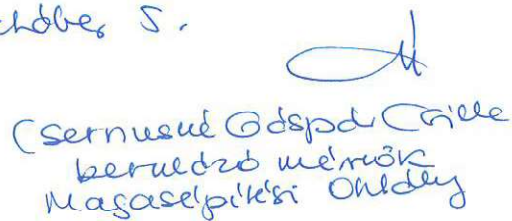 október 5.
Csernusné Gáspár Cecília
beruházó mérnök
Magasépítési Osztály